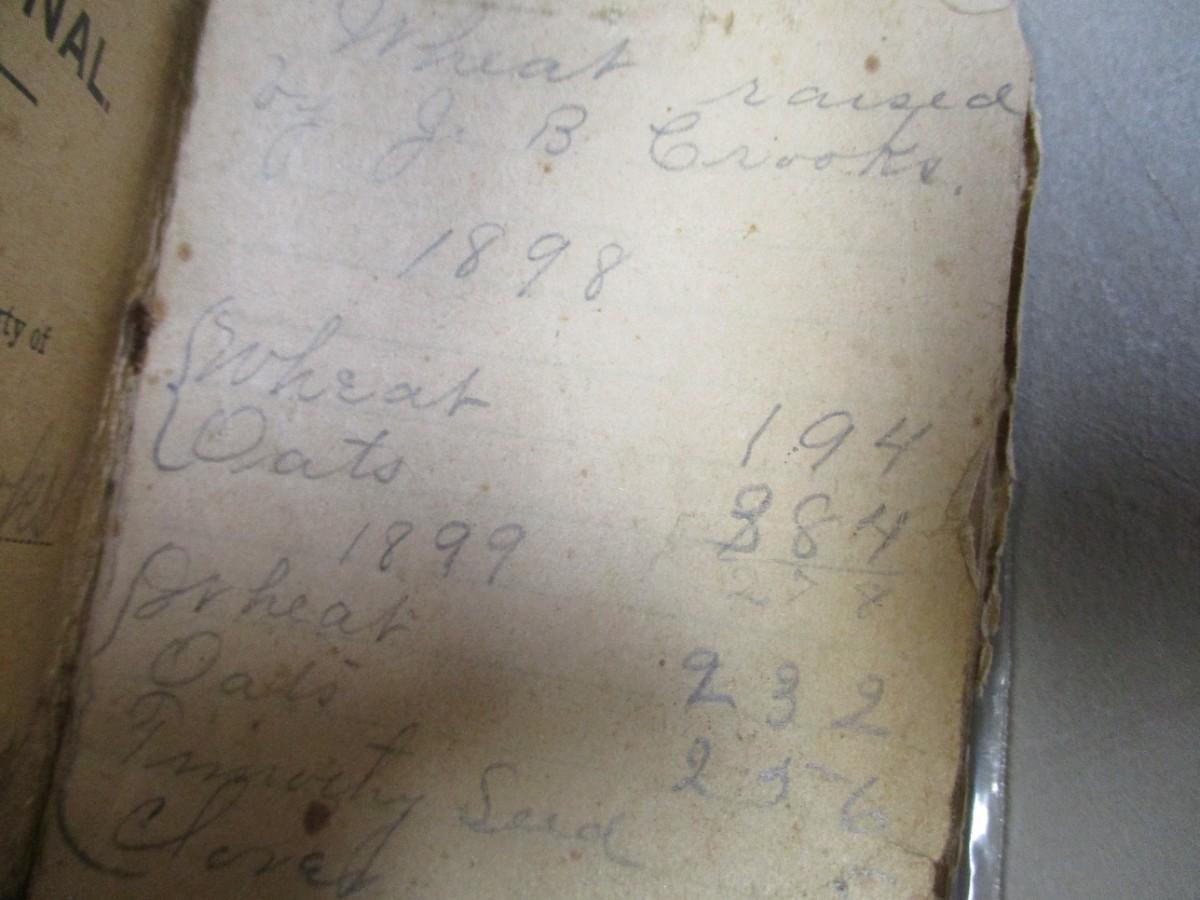 NAL.
rty of
Wheat raised
by J. B. Crooks.
1898
Wheat 194
Oats 884
278
1899
Wheat 232
Oats 256
Timothy Seed
Clover